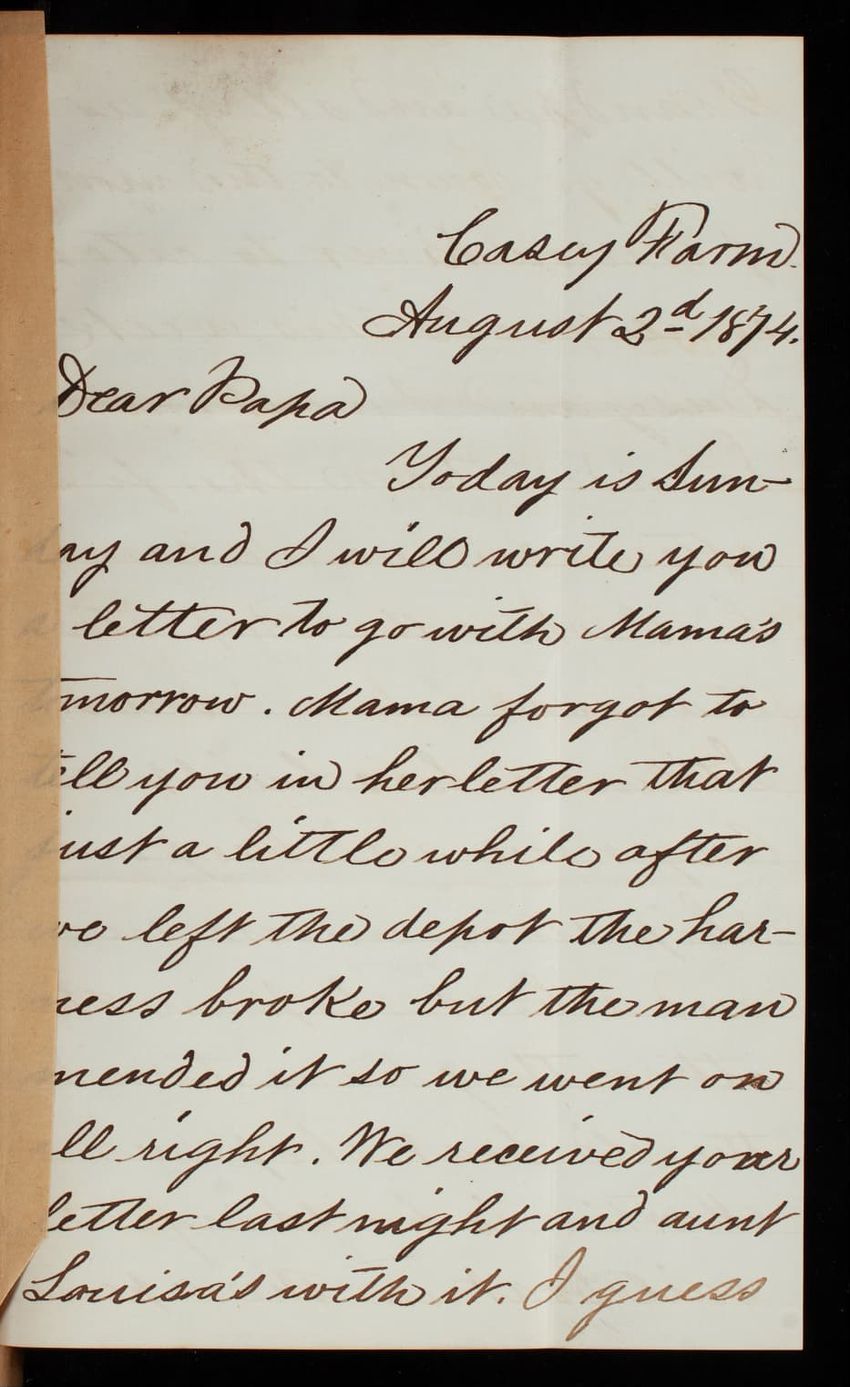 Casey Farm.
August 2d 1874.
Dear Papa
Today is Sun-
day and I will write you
a letter to go with Mama's
tomorrow. Mama forgot to
tell you in her letter that
just a little while after
we left the depot the har-
ness broke but the man
mended it so we went on
all right. We received your
letter last night and aunt
Louisa's with it. I guess